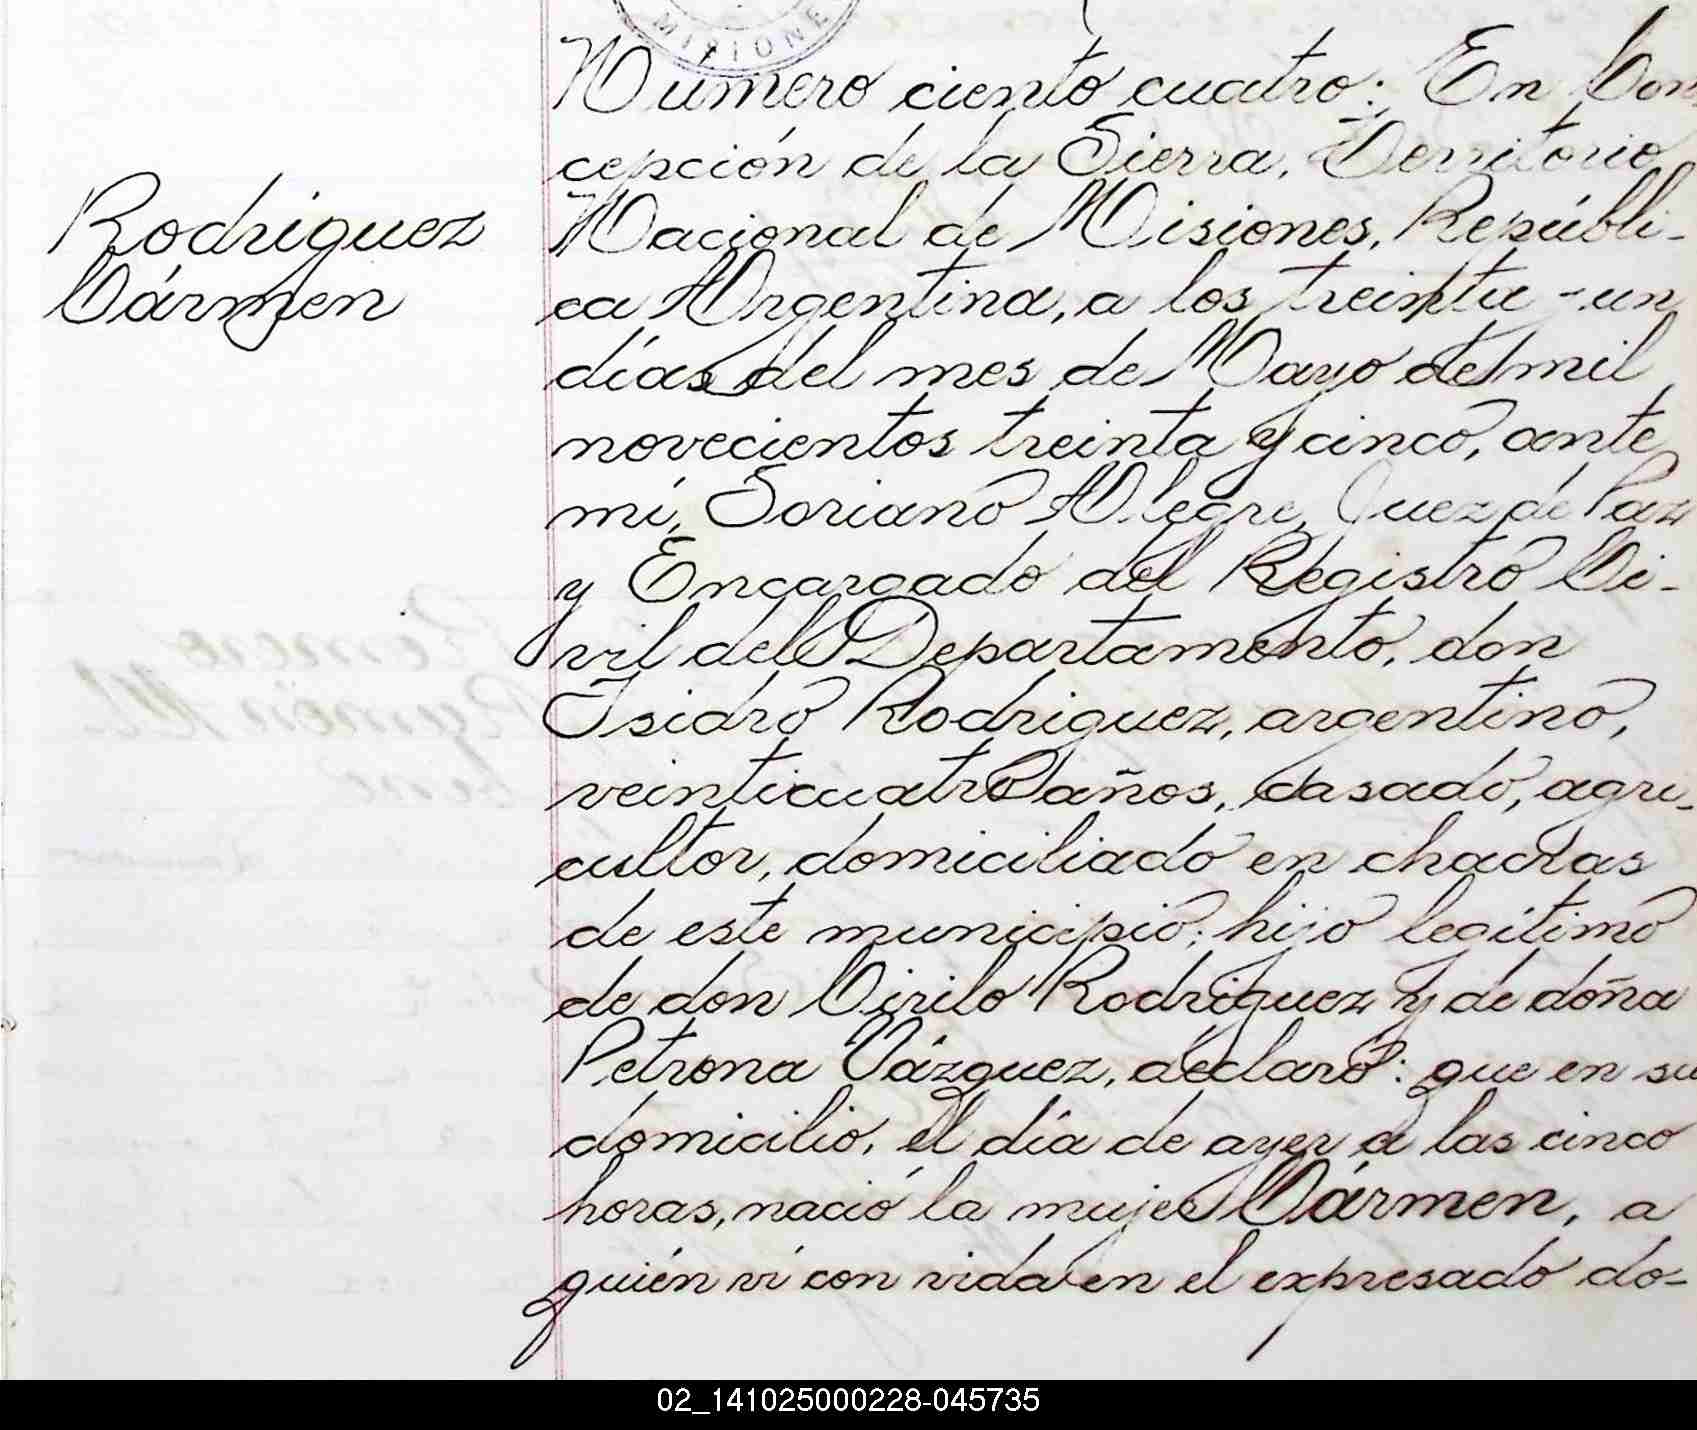 MISIONE
Rodriguez
Cármen
Número ciento cuatro: En Con
cepción de la Sierra, Territorio
Nacional de Misiones, Repúbli-
ca Argentina, a los treinta y un
días del mes de Mayo de mil
novecientos treinta y cinco, ante
mí, Soriano Alegre, Juez de Paz
y Encargado del Registro Ci-
vil del Departamento, don
Isidro Rodriguez, argentino,
veinticuatro años, casado, agri-
cultor, domiciliado en chacras
de este municipio; hijo legítimo
de don Cirilo Rodriguez y de doña
Petrona Vázquez, declaró: que en su
domicilio, el día de ayer a las cinco
horas, nació la mujer Cármen, a
quién ví con vida en el expresado do-
02_141025000228-045735